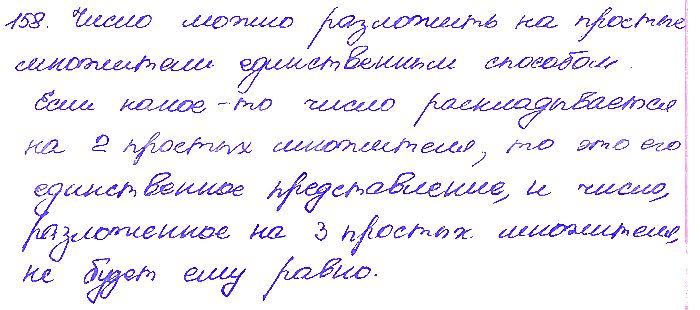 158. Число можно разложить на простые
множители единственным способом.
Если какое-то число раскладывается
на 2 простых множителя, то это его
единственное представление, и число,
разложенное на 3 простых множителя,
не будет ему равно.